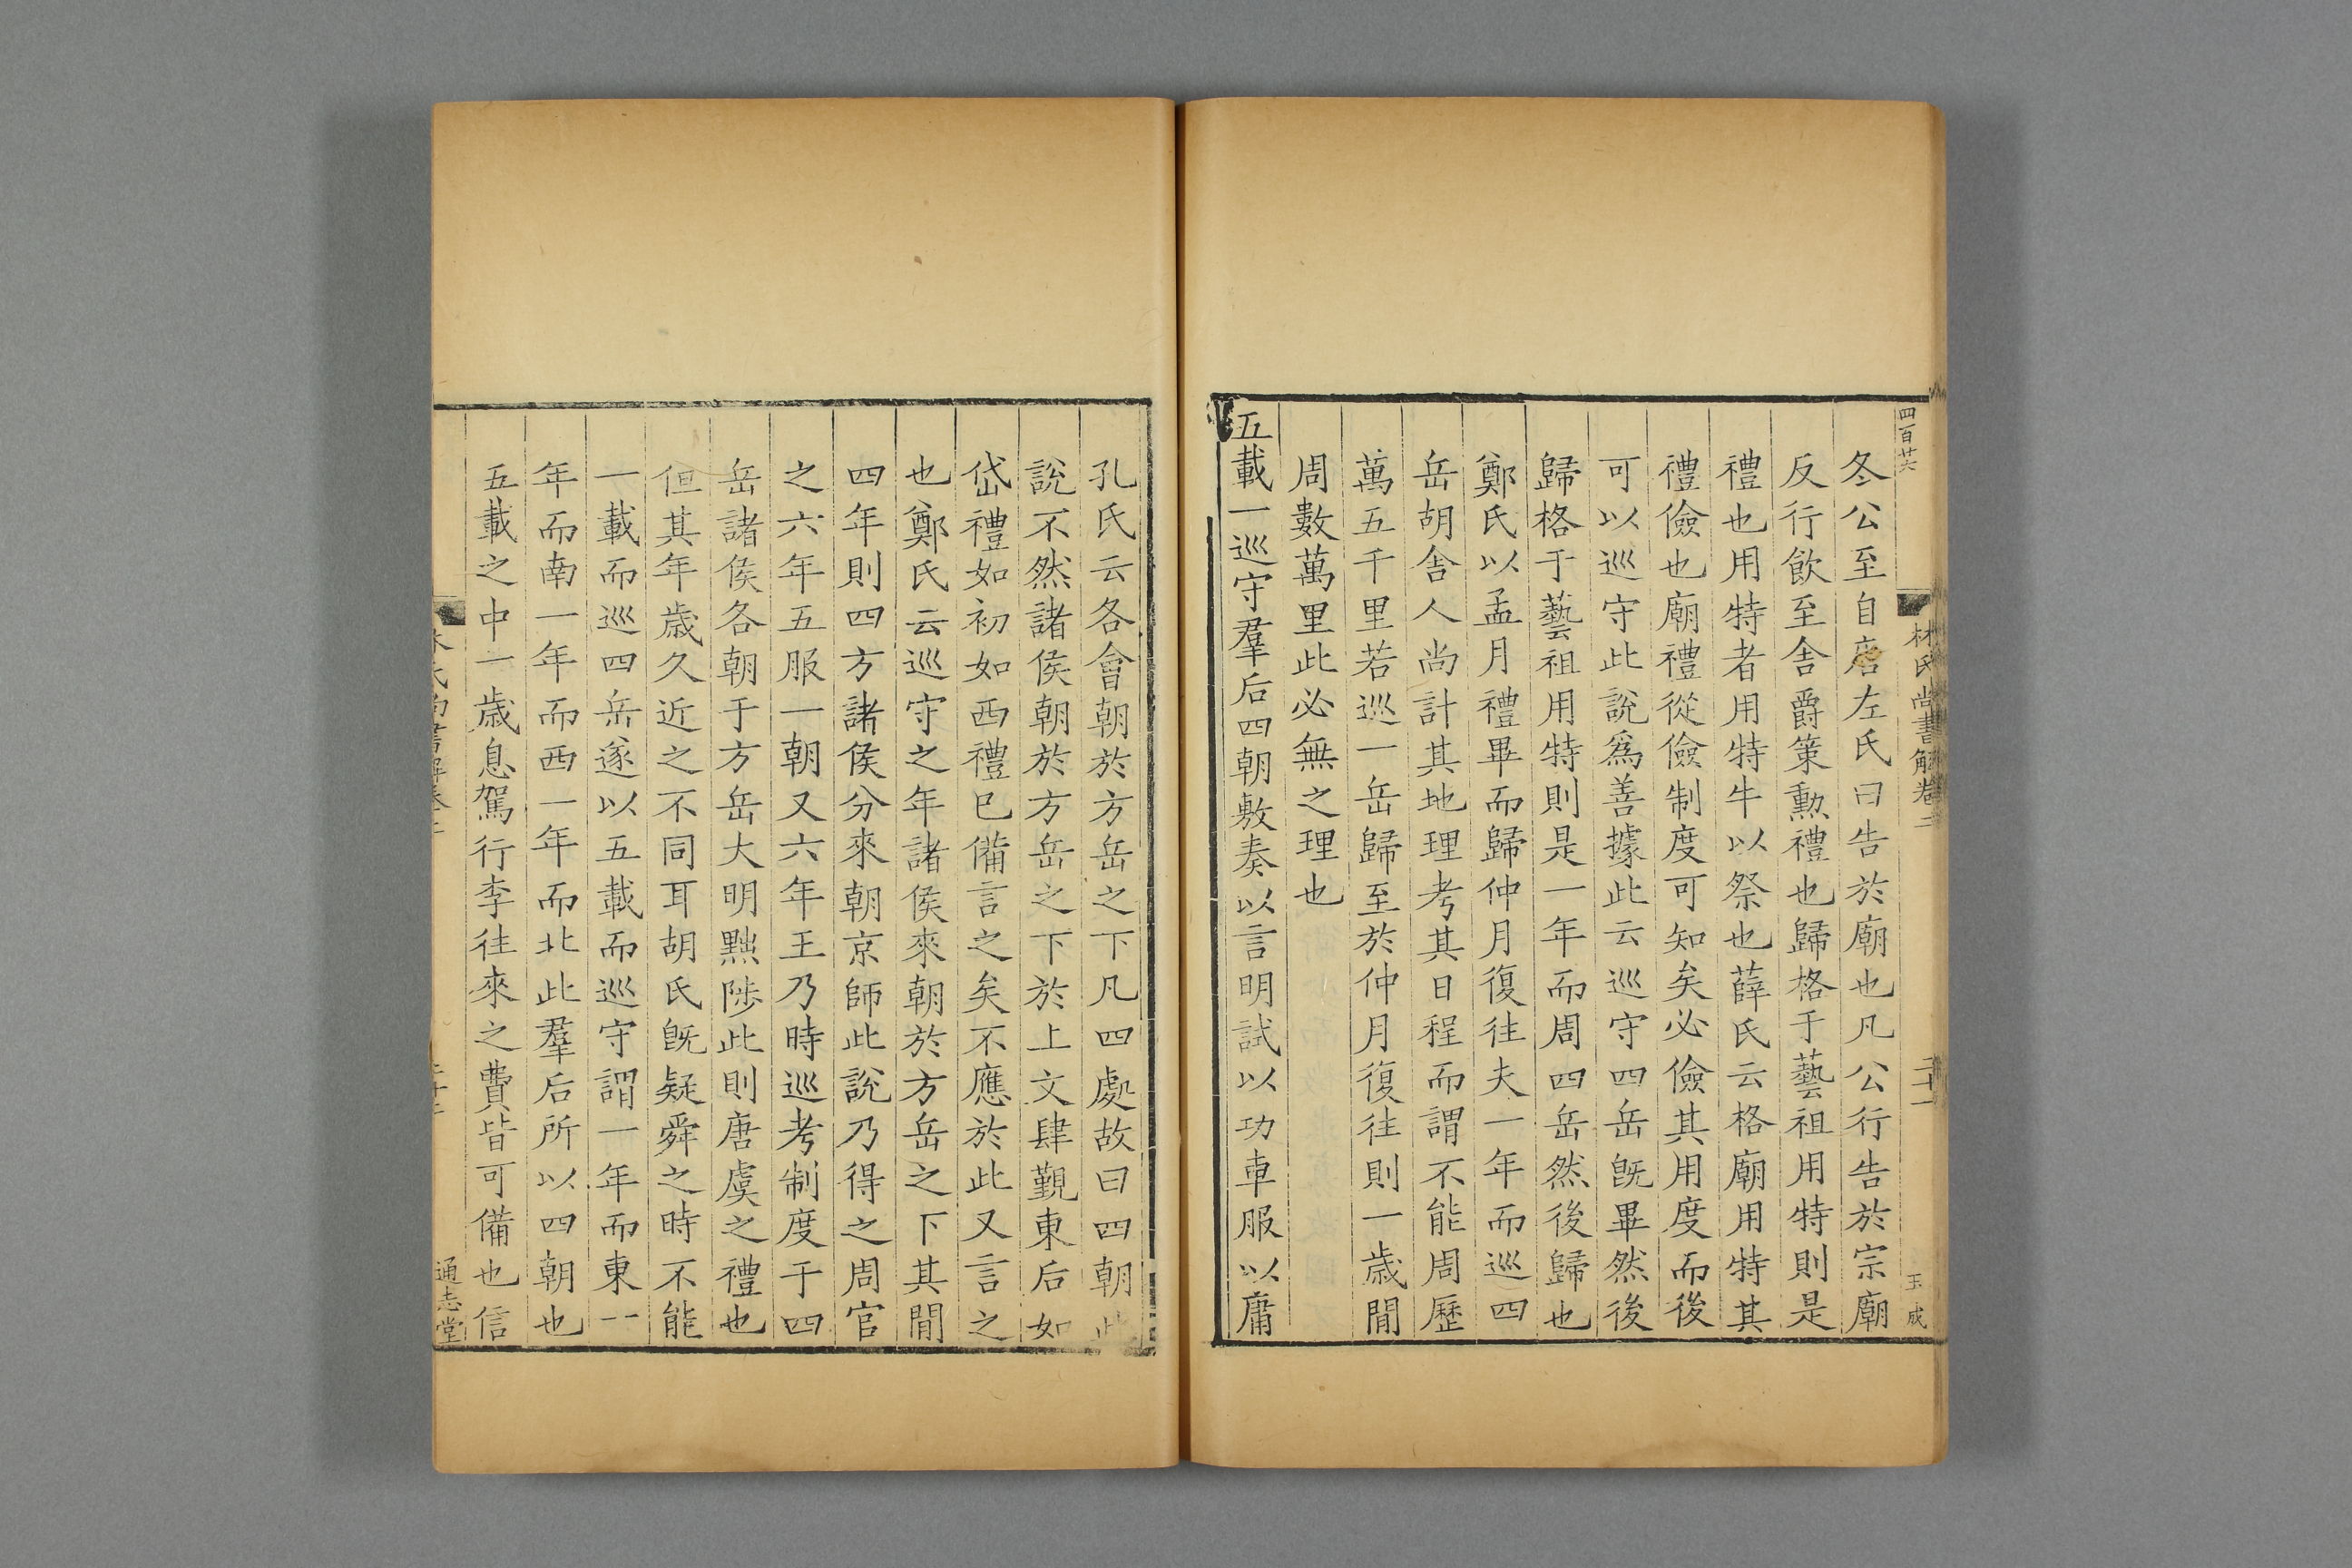 四百廿六
林氏尚書解卷二
二十一
玉成
冬公至自唐左氏曰告於廟也凡公行告於宗廟
反行飲至舍爵策勳禮也歸格于藝祖用特則是
禮也用特者用特牛以祭也薛氏云格廟用特其
禮儉也廟禮從儉制度可知矣必儉其用度而後
可以巡守此說爲善據此云巡守四岳旣畢然後
歸格于藝祖用特則是一年而周四岳然後歸也
鄭氏以孟月禮畢而歸仲月復往夫一年而巡四
岳胡舍人尚計其地理考其日程而謂不能周歷
萬五千里若巡一岳歸至於仲月復往則一歲閒
周數萬里此必無之理也
五載一巡守羣后四朝敷奏以言明試以功車服以庸
孔氏云各會朝於方岳之下凡四處故曰四朝此
說不然諸侯朝於方岳之下於上文肆覲東后如
岱禮如初如西禮已備言之矣不應於此又言之
也鄭氏云巡守之年諸侯來朝於方岳之下其閒
四年則四方諸侯分來朝京師此說乃得之周官
之六年五服一朝又六年王乃時巡考制度于四
岳諸侯各朝于方岳大明黜陟此則唐虞之禮也
但其年歲久近之不同耳胡氏旣疑舜之時不能
一載而巡四岳遂以五載而巡守謂一年而東一
年而南一年而西一年而北此羣后所以四朝也
五載之中一歲息駕行李往來之費皆可備也信
通志堂